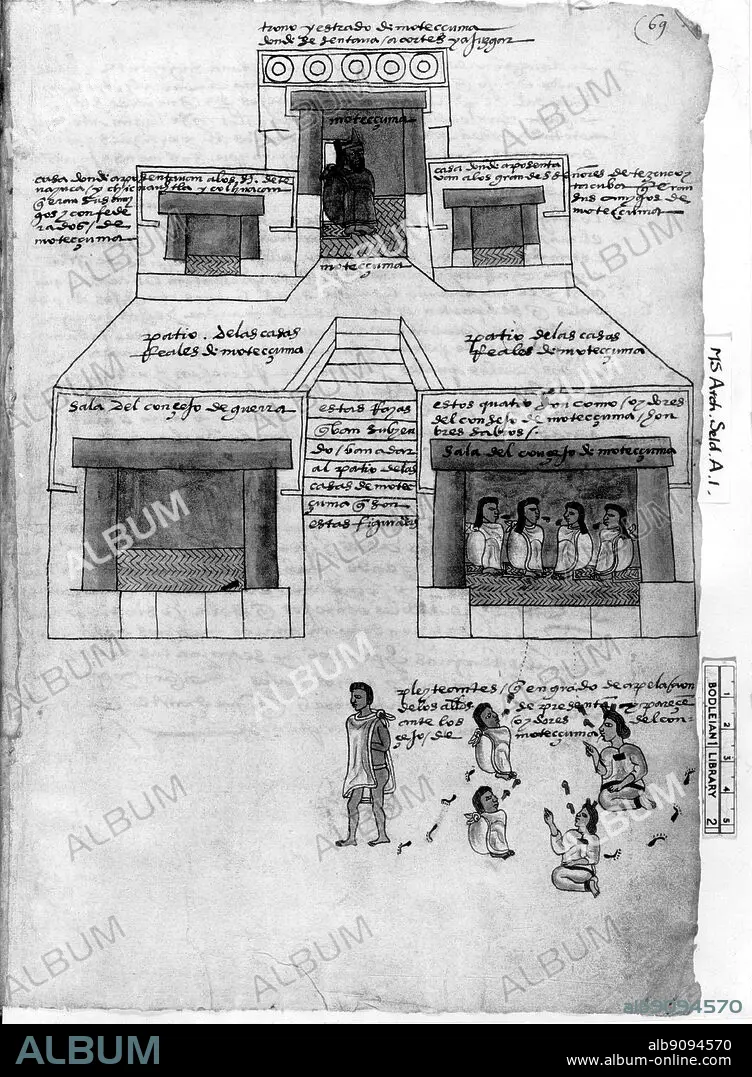 trono y estrado de moteccuma
donde se sentava a cortes y a juzgar
69
moteccuma
casa donde aposentavan a los s. de te
nayuca / y chicunauhtla y colhuacan
q eran sus ami
gos y confede
rados / de
moteccuma
casa donde aposenta
van a los grandes señores de tezcuco y
tacuba q eran
sus amigos de
moteccuma
moteccuma
patio . de las casas
Reales de moteccuma
patio de las casas
Reales de moteccuma
sala del consejo de guerra
estas Rayas
q van subyen
do / van a dar
al patio de las
casas de motec
cuma q son
estas figuradas
estos quatro son como / oydores
del consejo de moteccuma / hon
bres sabios /.
sala del consejo de moteccuma
pleyteantes / q en grado de apelacion
de los alldes se presentan y parecen
ante los oydores del con
sejo / de moteccuma
MS Arch. Seld. A. 1.
BODLEIAN LIBRARY
1 2 3 4 5
2
ALBUM
alb9094570
ALBUM
alb9094570
www.album-online.com